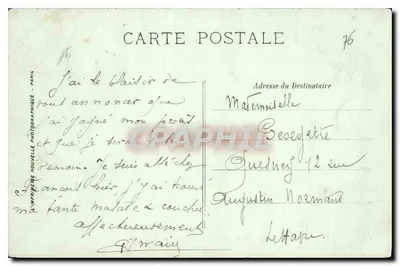 CARTE POSTALE
76
J'ai le plaisir de
vous annoncer que
j'ai gagné mon procès
et que je serai
demain. Je suis allé chez
hier j'y ai trouvé
ma tante malade &
affectueusement
Adresse du Destinataire
Mademoiselle
Georgette
Quesney 12 rue
Augustin Normand
Le Havre
IMPRIMERIE NOUVELLE PHOTOGRAPHIQUE - PARIS
CARTHAGO